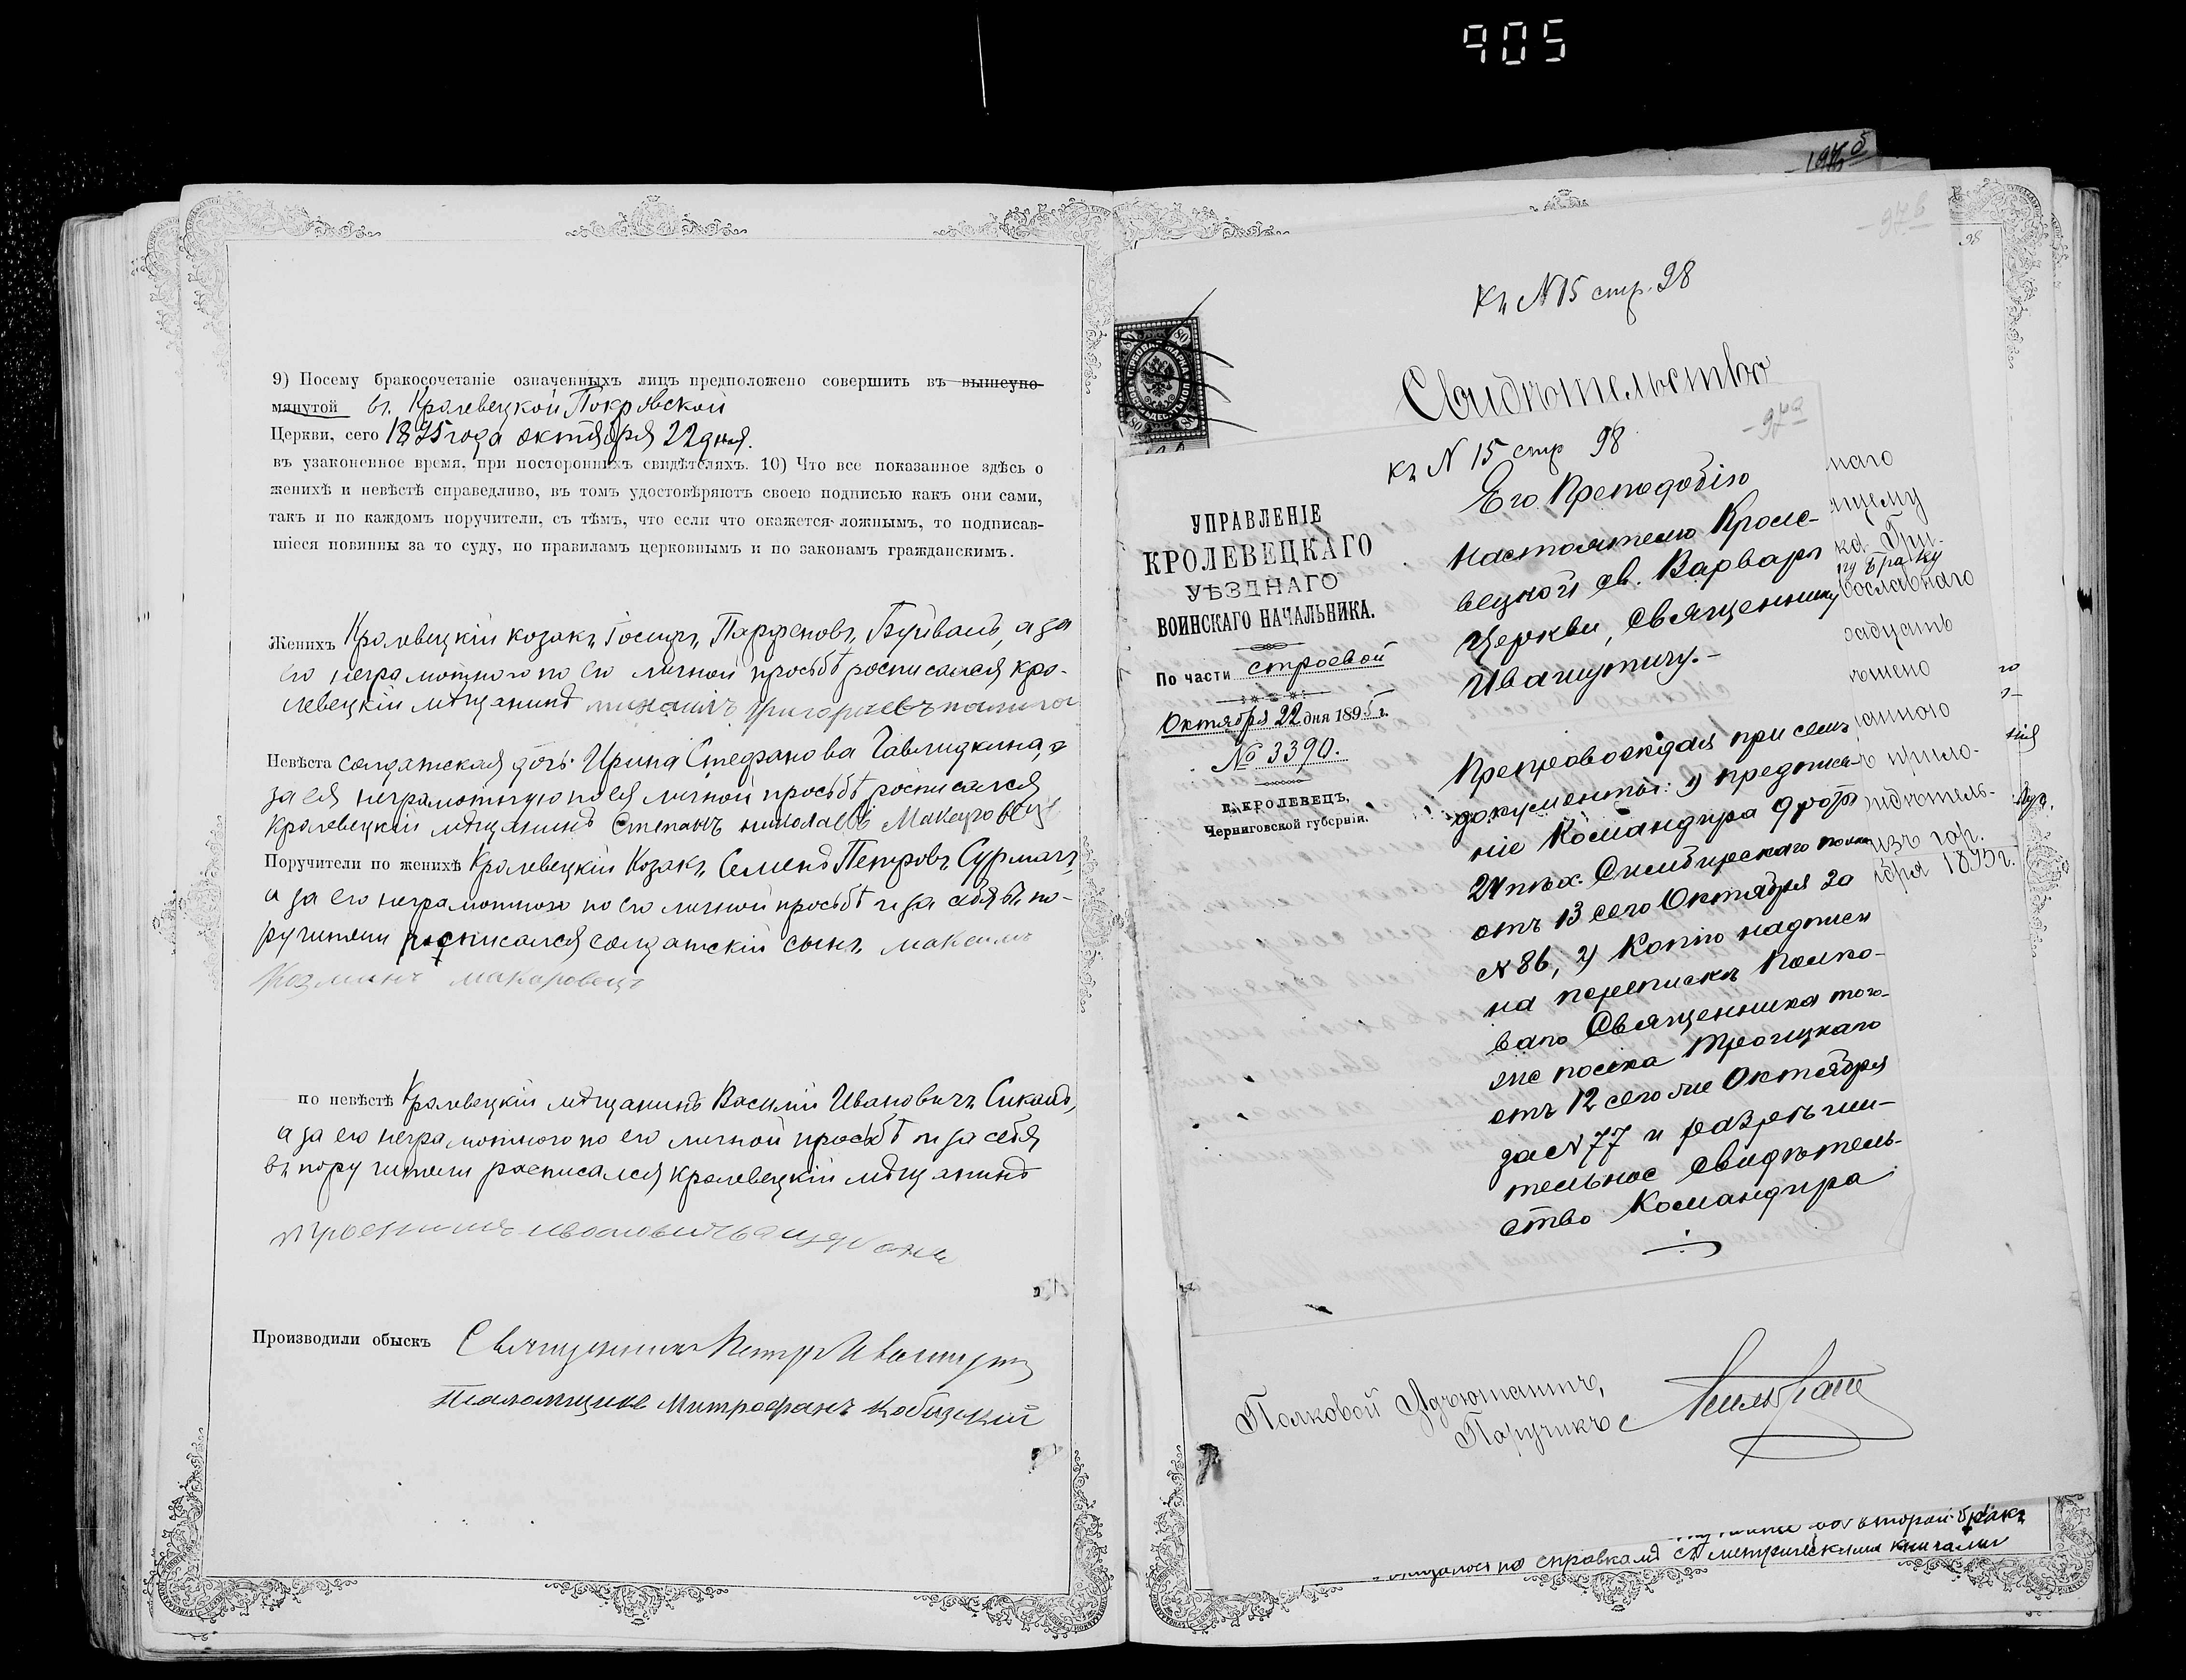 905
9) Посему бракосочетаніе означенныхъ лицъ предположено совершить въ вышеупо-
мянутой въ Кролевецкой Покровской
Церкви, сего 1895 года октября 22 дня.
въ узаконенное время, при постороннихъ свидѣтеляхъ. 10) Что все показанное здѣсь о
женихѣ и невѣстѣ справедливо, въ томъ удостовѣряютъ своею подписью какъ они сами,
такъ и по каждомъ поручители, съ тѣмъ, что если что окажется ложнымъ, то подписав-
шіеся повинны за то суду, по правиламъ церковнымъ и по законамъ гражданскимъ.
Женихъ Кролевецкій козакъ Іосифъ Парфеновъ Буйвалъ, а за
его неграмотного по его личной просьбѣ росписался кро-
левецкій мѣщанинъ михаилъ григорьевъ
Невѣста солдатская дочь Ирина Стефанова Гавлидкина, а
за ея неграмотную по ея личной просьбѣ росписался
Кролевецкій мѣщанинъ Степанъ николаевъ Макаровецъ
Поручители по женихѣ Кролевецкій Козакъ Семенъ Петровъ Сурмачъ,
а за его неграмотного по его личной просьбѣ и за себя въ по-
ручители росписался солдатскій сынъ максимъ
Козминъ макаровецъ
по невѣстѣ Кролевецкій мѣщанинъ Василій Ивановичъ Сикалъ,
а за его неграмотного по его личной просьбѣ и за себя
въ поручители росписался кролевецкій мѣщанинъ
Производили обыскъ Священникъ Петръ Ивашутичъ
Псаломщикъ Митрофанъ Кобизскій
97б
97в
98
Къ N 15 стр. 98
Свидѣтельство
97а
къ N 15 стр 98
УПРАВЛЕНІЕ
КРОЛЕВЕЦКАГО
УѢЗДНАГО
ВОИНСКАГО НАЧАЛЬНИКА.
По части строевой
Октября 22 дня 1895 г.
№ 3390.
Г. КРОЛЕВЕЦЪ,
Черниговской губерніи.
Его Преподобію
Настоятелю Кроле-
вецкой св. Варвары
Церкви, Священнику
Ивашутичу.-
Препровождая при семъ
документы: 1) предписа-
ніе Командира 9 роты
24 пѣх. Симбирскаго полка
отъ 13 сего Октября за
N 86, 2) Копію надписи
на перепискѣ Полко-
ваго Священника того-
же полка Троицкаго
отъ 12 сего же Октября
за N 77 и разрѣши-
тельное свидѣтель-
ство Командира
наго
ящему
браку
вославнаго
изъ гор.
1895 г.
Полковой Адъютантъ,
Поручикъ
второй бракъ
по справкамъ съ метрическими книгами